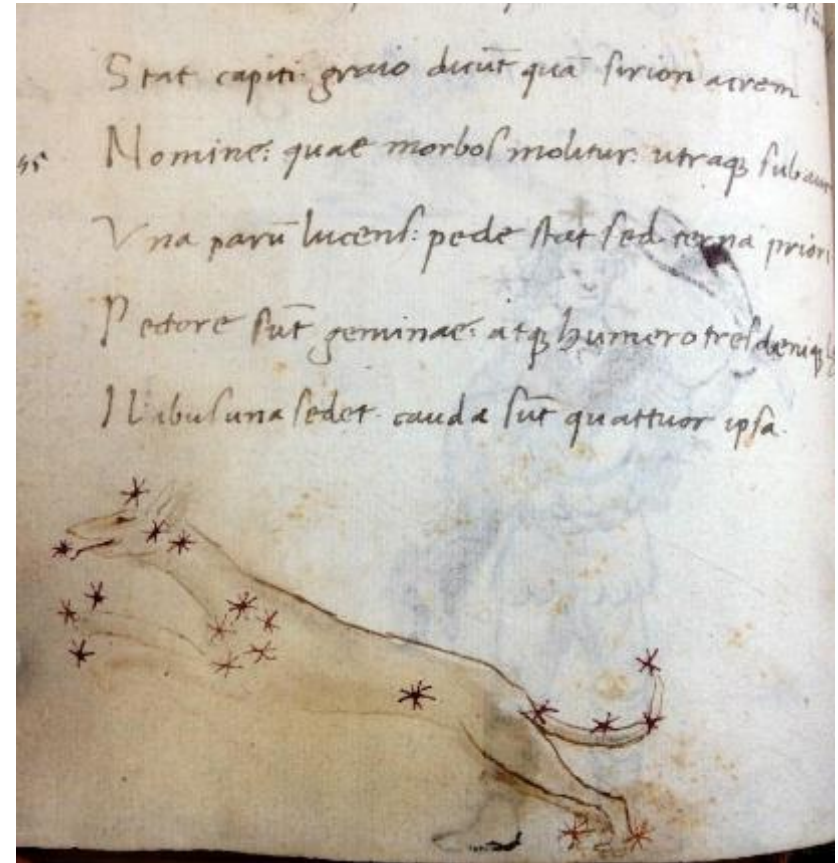 Stat capiti graio dicūt quā sirion acrem
Nomine: quae morbos molitur: utraqꝫ sub aur
Vna parū lucens: pede stat sed terna priori
Pectore sūt geminae: atqꝫ humero tres deniqꝫ
Ilibus una sedet cauda sūt quattuor ipsa.